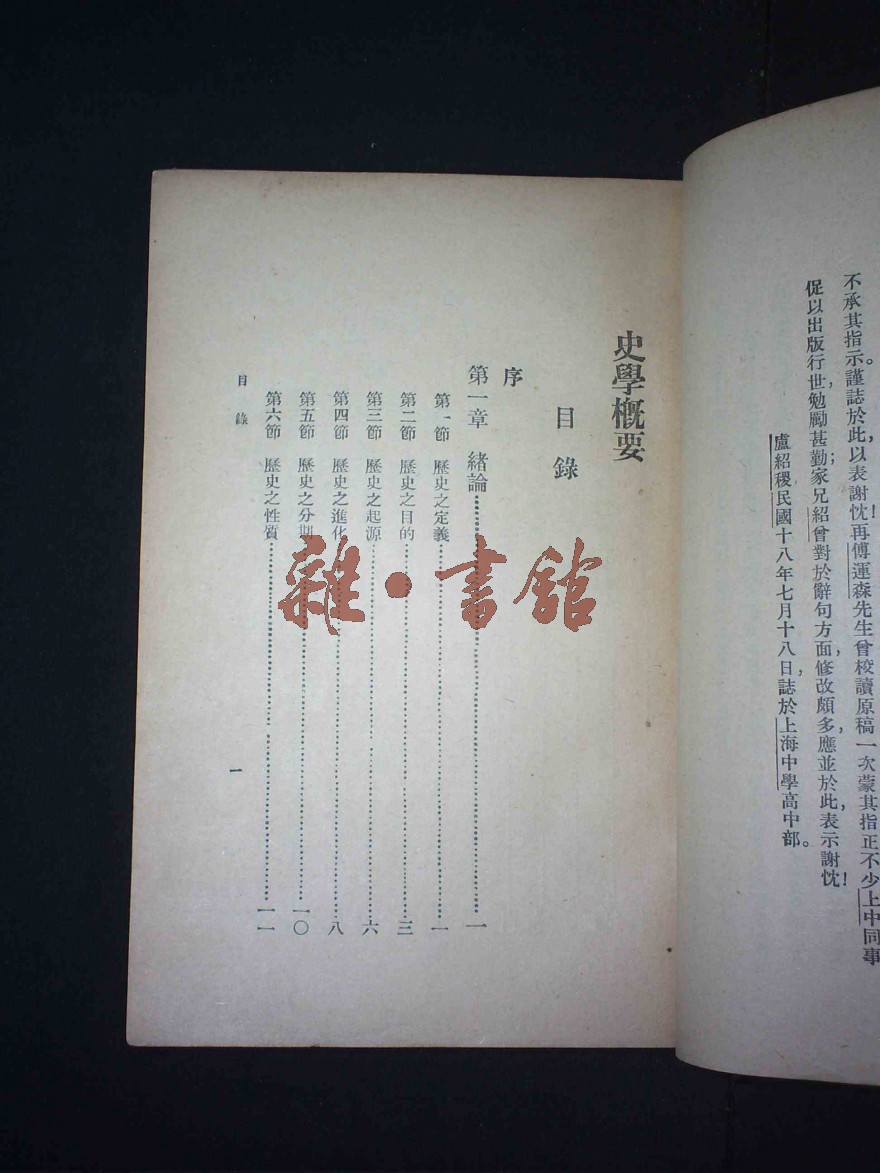 不承其指示謹誌於此，以表謝忱！再傅運森先生曾校讀原稿一次，蒙其指正不少。上中同事
促以出版行世，勉勵甚勤；家兄紹曾對於辭句方面，修改頗多，應並於此，表示謝忱！
盧紹稷民國十八年七月十八日，誌於上海中學高中部。
史學概要
目錄
序
第一章 緒論……一
第一節 歷史之定義……一
第二節 歷史之目的……三
第三節 歷史之起源……六
第四節 歷史之進化……八
第五節 歷史之分期……一〇
第六節 歷史之性質……一一
目錄
一
雜·書館